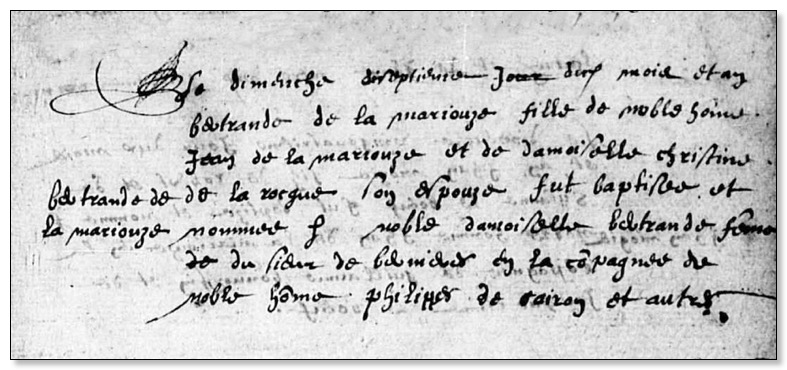 Le dimenche diseptiesme Jour dud mois et an
bertrande de la mariouze fille de noble hôme
Jean de la mariouze et de damoiselle christine
bertrande de de la rocque son espouze fut baptisee et
la mariouze nommee p noble damoiselle bertrande feme
de du sieur de bernieres en la côpagnee de
noble hôme philippes de cairon et autres